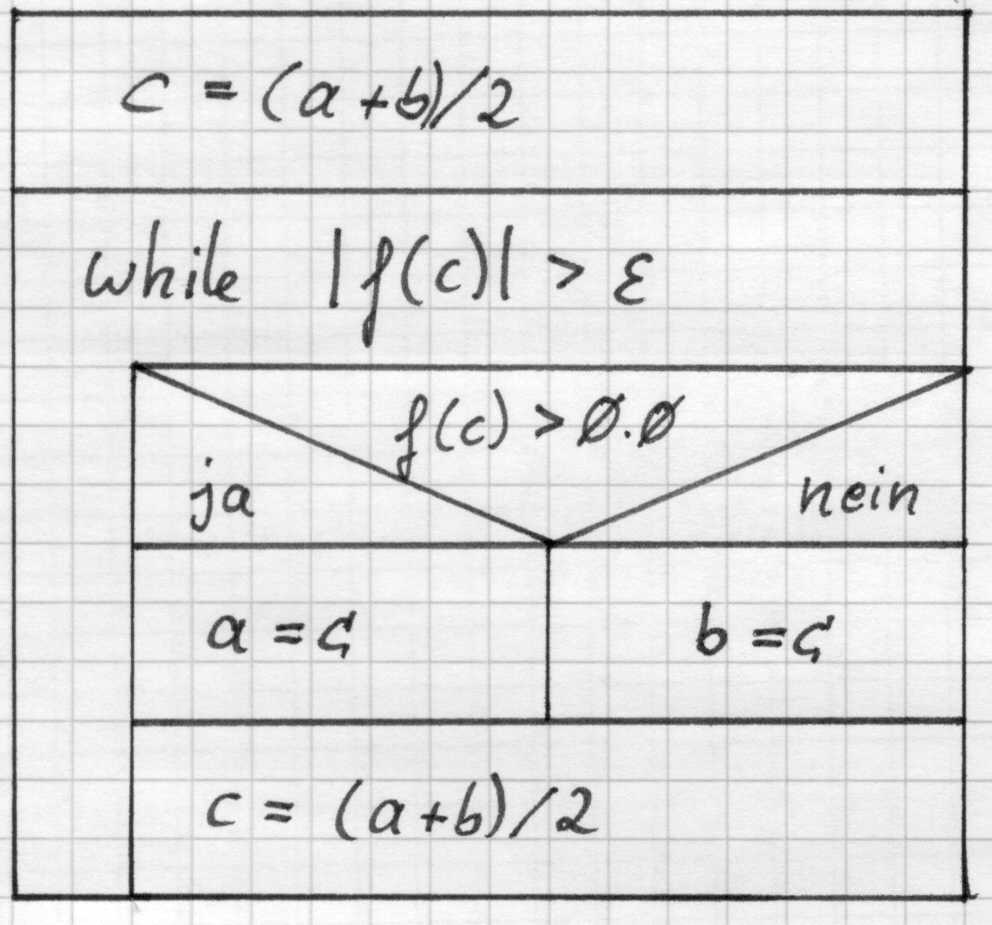 c = (a+b)/2
while |f(c)| > ε
f(c) > 0.0
ja
nein
a = c
b = c
c = (a+b)/2